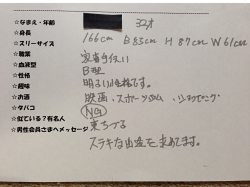 ☆なまえ・年齢 32才
☆身長 166cm B85cm H87cm W61cm
☆スリーサイズ
☆職業 家事手伝い
☆血液型 B型
☆性格 明るい性格です。
☆趣味 映画、スポーツジム、ショッピング
☆お酒 NG
☆タバコ
☆似ている?有名人
☆男性会員さまへメッセージ ステキな出逢を求めてます。